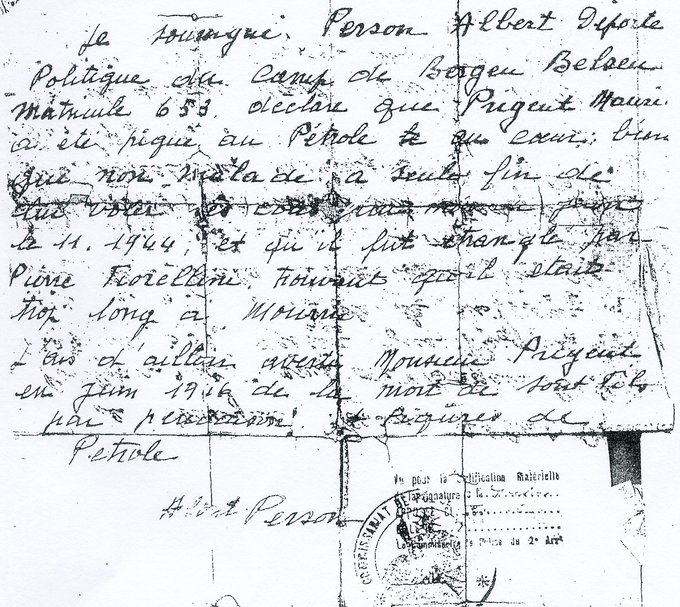 Je soussigné. Person Albert Déporté
Politique du Camp de Bergen Belsen
Matricule 653. déclare que Prigent Mauri
a été piqué au Pétrole au cœur, bien
que non malade a seule fin de
lui voler
le 11. 1944, et qu'il fut étranglé par
Pierre Fiorellini, trouvant qu'il était
trop long à Mourir
J'ai d'ailleurs averti Monsieur Prigent
en Juin 1946 de la mort de son Fils
par pendaison et piqûres de
Pétrole
Albert Person
Vu pour la Certification Matérielle
de la signature
COMMISSARIAT DE
Le Commissaire de Police du 2e Arrt